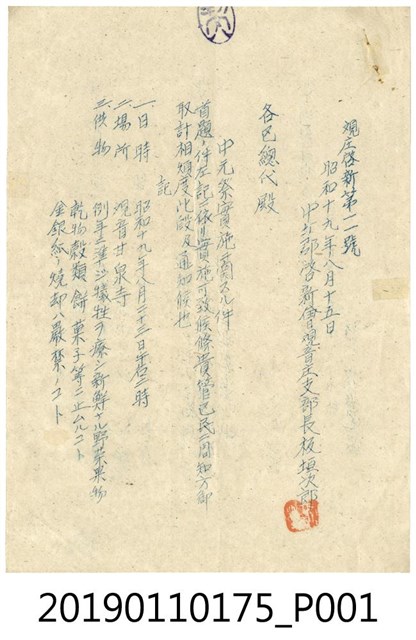 観庄啓新第一一號
昭和十九年八月十五日
中壢郡啓新會觀音庄支部長板垣次郎
各區總代殿
中元祭實施ニ關スル件
首題ノ件左記ニ依リ實施可致候條貴管區民ニ周知方御
取計相煩度此段及通知候也
記
一、日時 昭和十九年八月三十一日午后二時
二、場所 觀音甘泉寺
三、供物 例年ニ準ジ犠牲ヲ廢シ新鮮ナル野菜果物
乾物穀類餅菓子等ニ止ムルコト
金銀紙ノ燒却ハ嚴禁ノコト
20190110175_P001